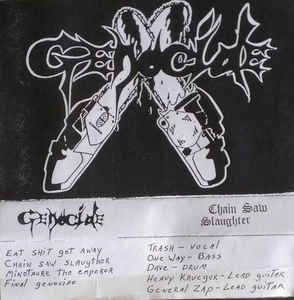 Genocide
Genocide
Chain Saw
Slaughter
EAT SHIT GOT AWAY
CHAIN SAW SLAUGTHER
MINOTAURE THE EMPEROR
FINAL GENOCIDE
TRASH - VOCAL
ONE WAY - BASS
DAVE - DRUM
HEAVY KRUEGER - LEAD GUITAR
GENERAL ZAP - LEAD GUITAR